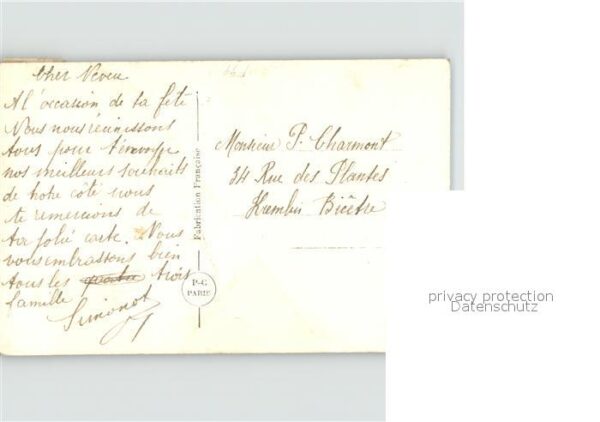 Cher Neveu
A l'occasion de ta fête
Nous nous réunissons
tous pour t'envoyer
nos meilleurs souhaits
de notre côté nous
te remercions de
ta jolie carte. Nous
vous embrassons bien
tous les quatre trois
famille
Simonot
Fabrication Française
P-C
PARIS
Monsieur P. Charmont
34 Rue des Plantes
Kremlin Bicêtre
privacy protection
Datenschutz